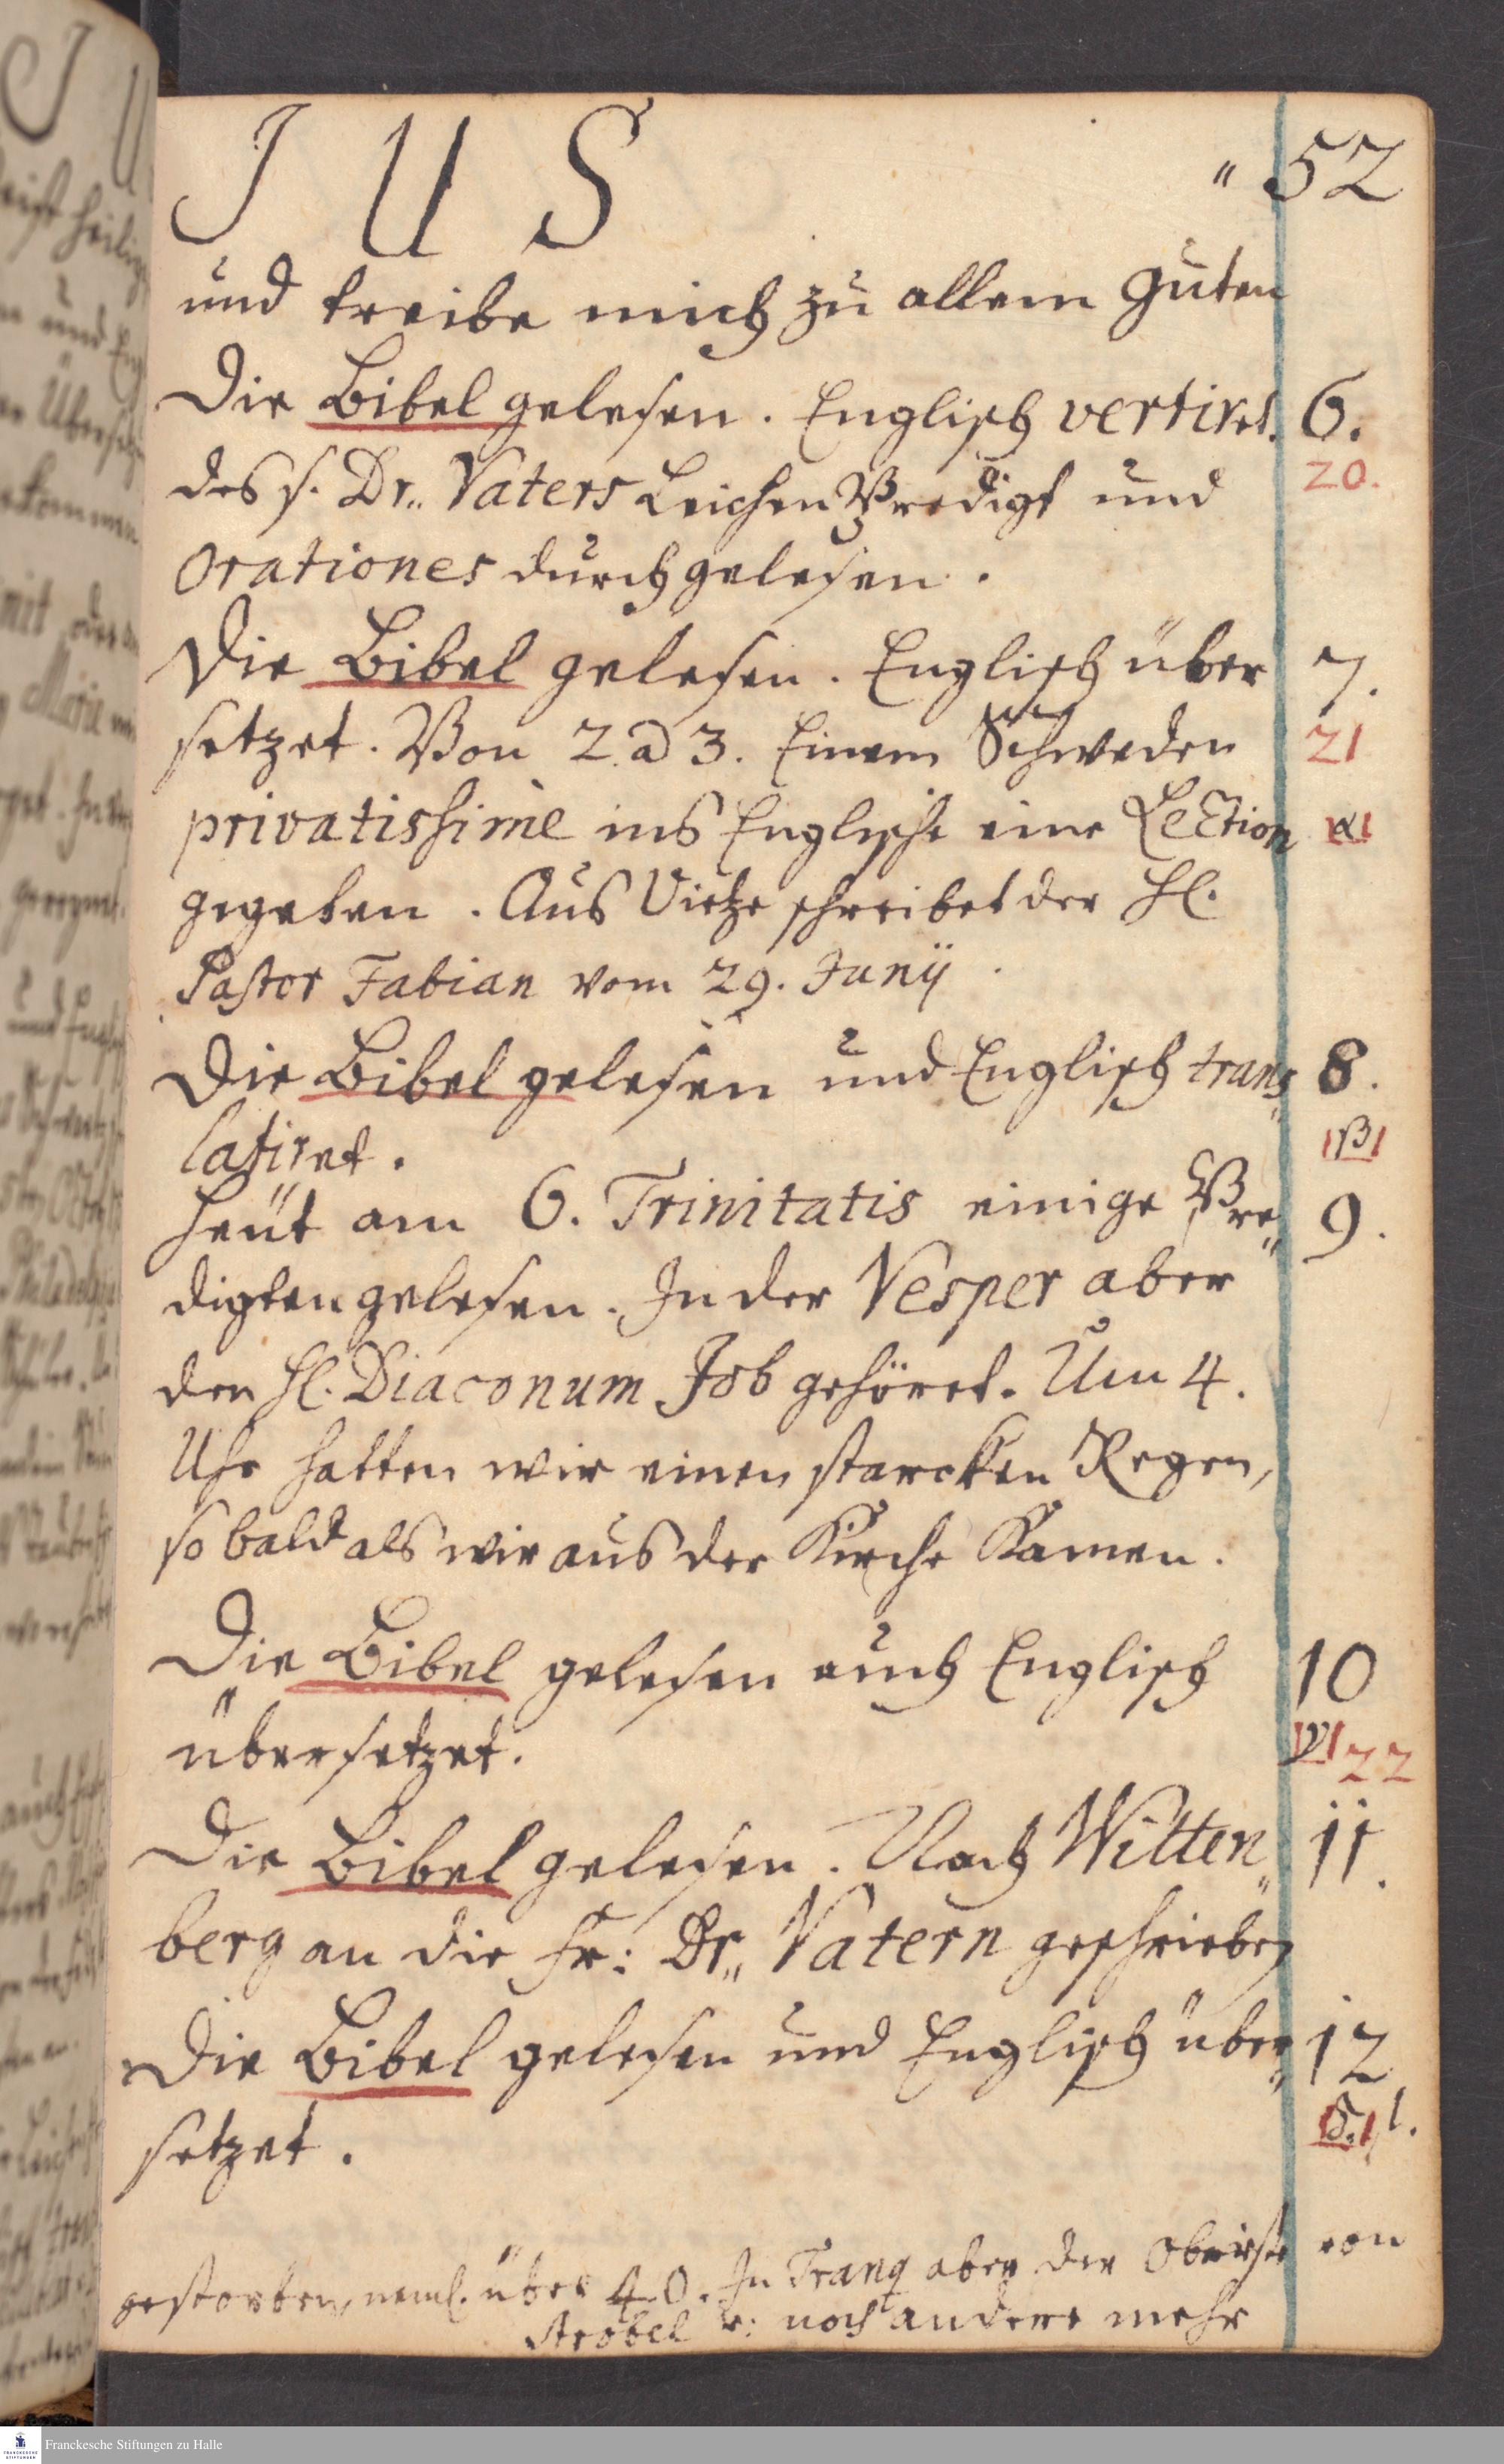 J U S „ 52
und treibe mich zu allem Guten
Die Bibel gelesen. Englisch vertiret. 6.
des s. Dr„ Vaters Leichen Predigt und 20.
Orationes durchgelesen.
Die Bibel gelesen. Englisch über 7.
setzet. Von 2 a 3. Einem Schweden 21
privatissime ins Englische eine Lection |α|
gegeben. Aus Vietze schreibet der Hl.
Pastor Fabian vom 29. Junij.
Die Bibel gelesen und Englisch trans„ 8.
latiret. |β|
Heüt am 6. Trinitatis einige Pre„ 9.
digten gelesen. In der Vesper aber
den Hl. Diaconum Job gehöret. Um 4.
Uhr hatten wir einen starcken Regen,
so bald als wir aus der Kirche kamen.
Die Bibel gelesen auch Englisch 10
übersetzet. |γ| 22
Die Bibel gelesen. Nach Witten„ 11.
berg an die Fr: Dr„ Vatern geschrieben
Die Bibel gelesen und Englisch über„ 12
setzet. |δ.| 1.
gestorben, neml. über 40. In Tranq aber der Obriste von
Strobel u: noch andere mehr
Franckesche Stiftungen zu Halle